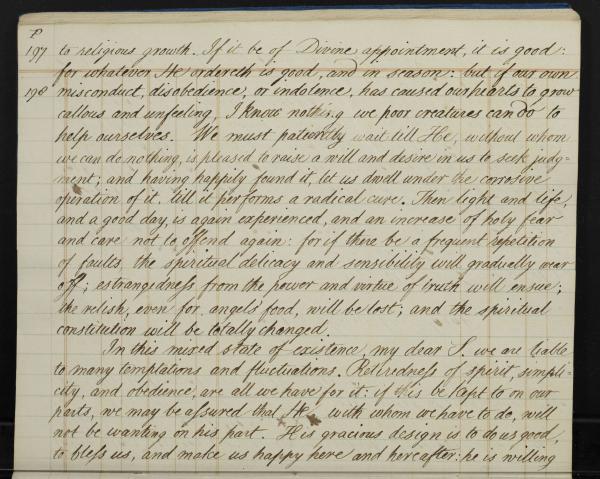 P
197 to religious growth. If it be of Divine appointment, it is good:
for whatever He ordereth is good, and in season: but if our own
198 misconduct, disobedience, or indolence, has caused our hearts to grow
callous and unfeeling, I know nothing we poor creatures can do to
help ourselves. We must patiently wait till He, without whom
we can do nothing, is pleased to raise a will and desire in us to seek judg=
ment; and having happily found it, let us dwell under the corrosive
operation of it, till it performs a radical cure. Then light and life,
and a good day, is again experienced, and an increase of holy fear
and care not to offend again: for if there be a frequent repetition
of faults, the spiritual delicacy and sensibility will gradually wear
off; estrangedness from the power and virtue of truth will ensue;
the relish, even for angels' food, will be lost; and the spiritual
constitution will be totally changed.
In this mixed state of existence, my dear S. we are liable
to many temptations and fluctuations. Retiredness of spirit, simpli=
city, and obedience, are all we have for it: if this be kept to on our
parts, we may be assured that He, with whom we have to do, will
not be wanting on his part. His gracious design is to do us good,
to bless us, and make us happy here and hereafter: he is willing